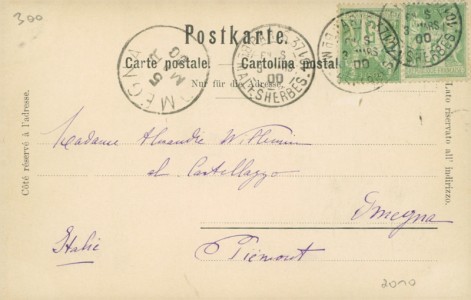 300
Postkarte.
Carte postale. Cartolina postale
Nur für die Adresse.
OMEGNA
5
00
MALESHERBES
3 MARS
00
Côté réservé à l'adresse.
Lato riservato all' indirizzo.
Madame Alexandre
al Castellaggo
Omegna
Italie Piémont
2010